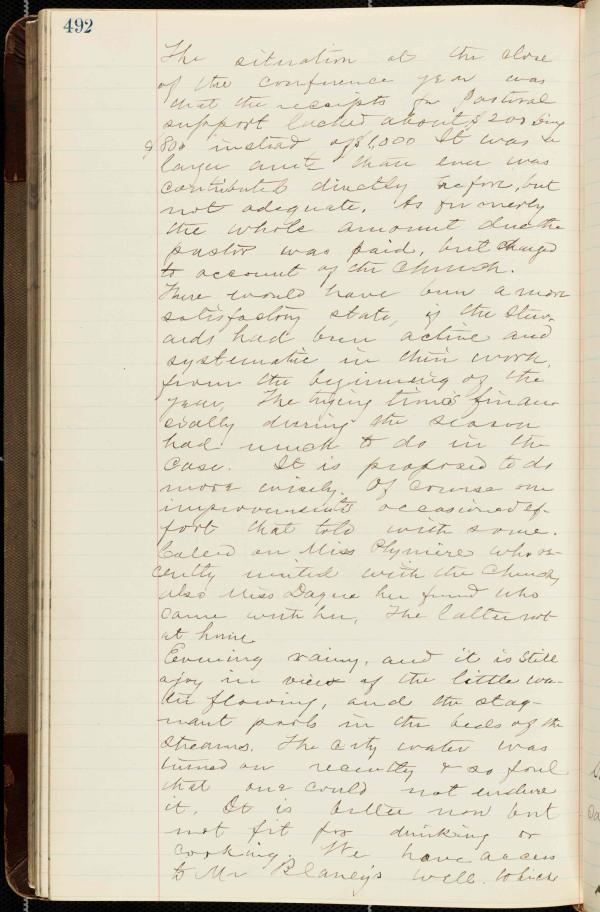 492
The situation at the close
of the conference year was
that the receipts for Pastoral
support lacked about $200 being
$800 instead of $1,000 It was a
larger amt than ever was
contributed directly before, but
not adequate. As formerly
the whole amount due the
pastor was paid, but charged
to account of the Church.
There would have been a more
satisfactory state, if the Stew-
ards had been active and
systematic in their work,
from the beginning of the
year, The trying times finan-
cially during the season
had much to do in the
case. It is proposed to do
more wisely. Of course our
improvements occasioned ef-
fort that told with some.
Called on Miss Plymire who re-
cently united with the Church,
also Miss Dague her friend who
came with her, The latter not
at home
Evening rainy, and it is still
a joy in view of the little wa-
ter flowing, and the stag-
nant pools in the beds of the
streams. The city water was
turned on recently & so foul
that one could not endure
it. It is better now but
not fit for drinking or
cooking. We have access
to Mr Blaney's well. which